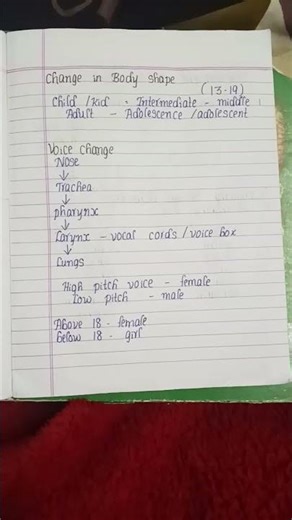 Change in Body shape
(13-19)
Child / Kid • Intermediate - middle
Adult - Adolescence / adolescent
Voice change
Nose
↓
Trachea
↓
pharynx
↓
Larynx - vocal cords / voice box
↓
Lungs
High pitch voice - female
Low pitch - male
Above 18 - female
below 18 - girl